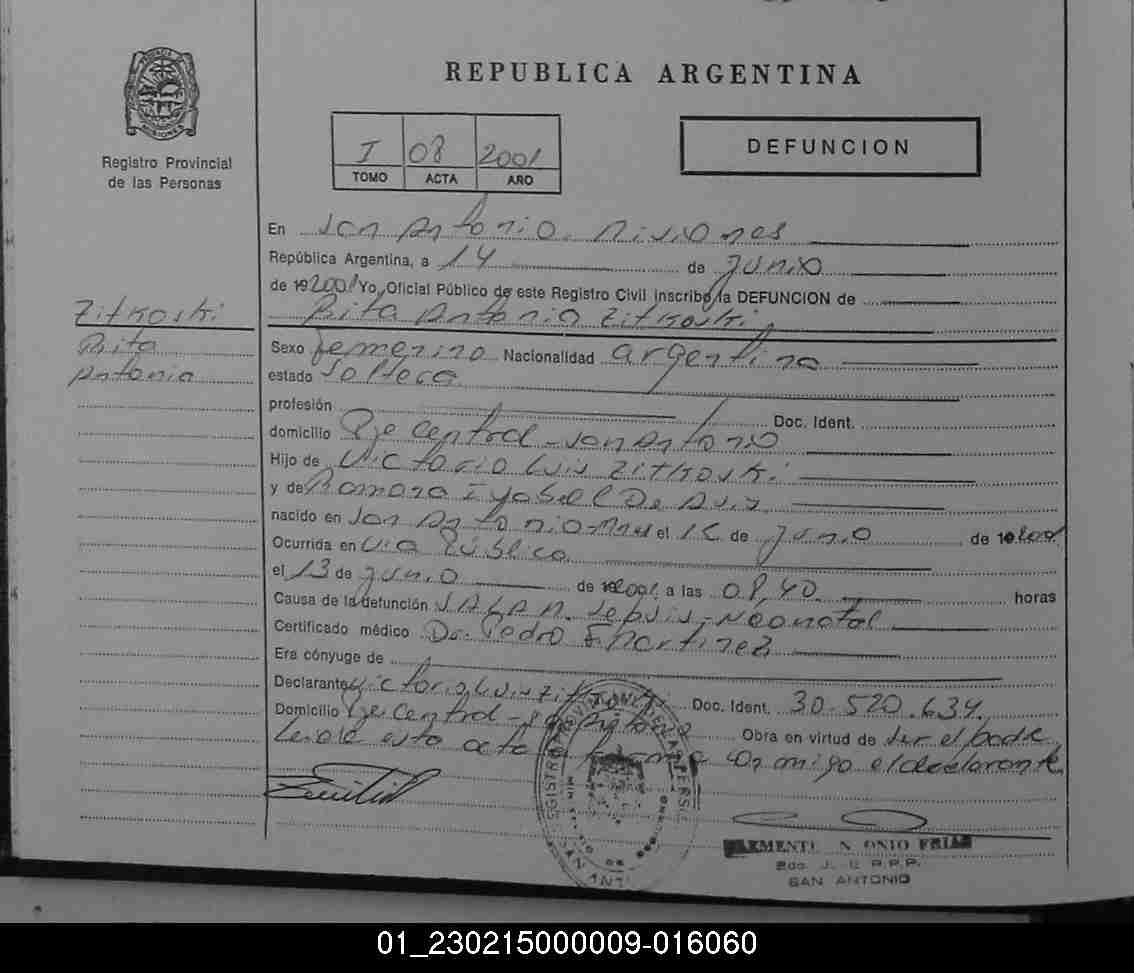 REPUBLICA ARGENTINA
Registro Provincial
de las Personas
I 08 2001
TOMO ACTA AÑO
DEFUNCION
En San Antonio. Misiones
República Argentina, a 14 de Junio
de 19 2001 Yo, Oficial Público de este Registro Civil inscribo la DEFUNCION de
Rita Antonia Zitkoski
Zitkoski
Rita
Antonia
Sexo femenino Nacionalidad argentina
estado Soltera
profesión Doc. Ident.
domicilio Pje Central - San Antonio
Hijo de Victorio Luis Zitkoski
y de Ramona Isabel De
nacido en San Antonio el de Junio de 19 2001
Ocurrida en Via Pública
el 13 de Junio de 19 2001 a las 08,40 horas
Causa de la defunción Sepsis Neonatal
Certificado médico Dr. Pedro Martinez
Era cónyuge de
Declarante Victorio Luis Zitkoski Doc. Ident. 30.520.634.
Domicilio Pje Central - San Antonio Obra en virtud de ser el padre
Leida esta acta la firma conmigo el declarante.
SAN ANTONIO
01_230215000009-016060